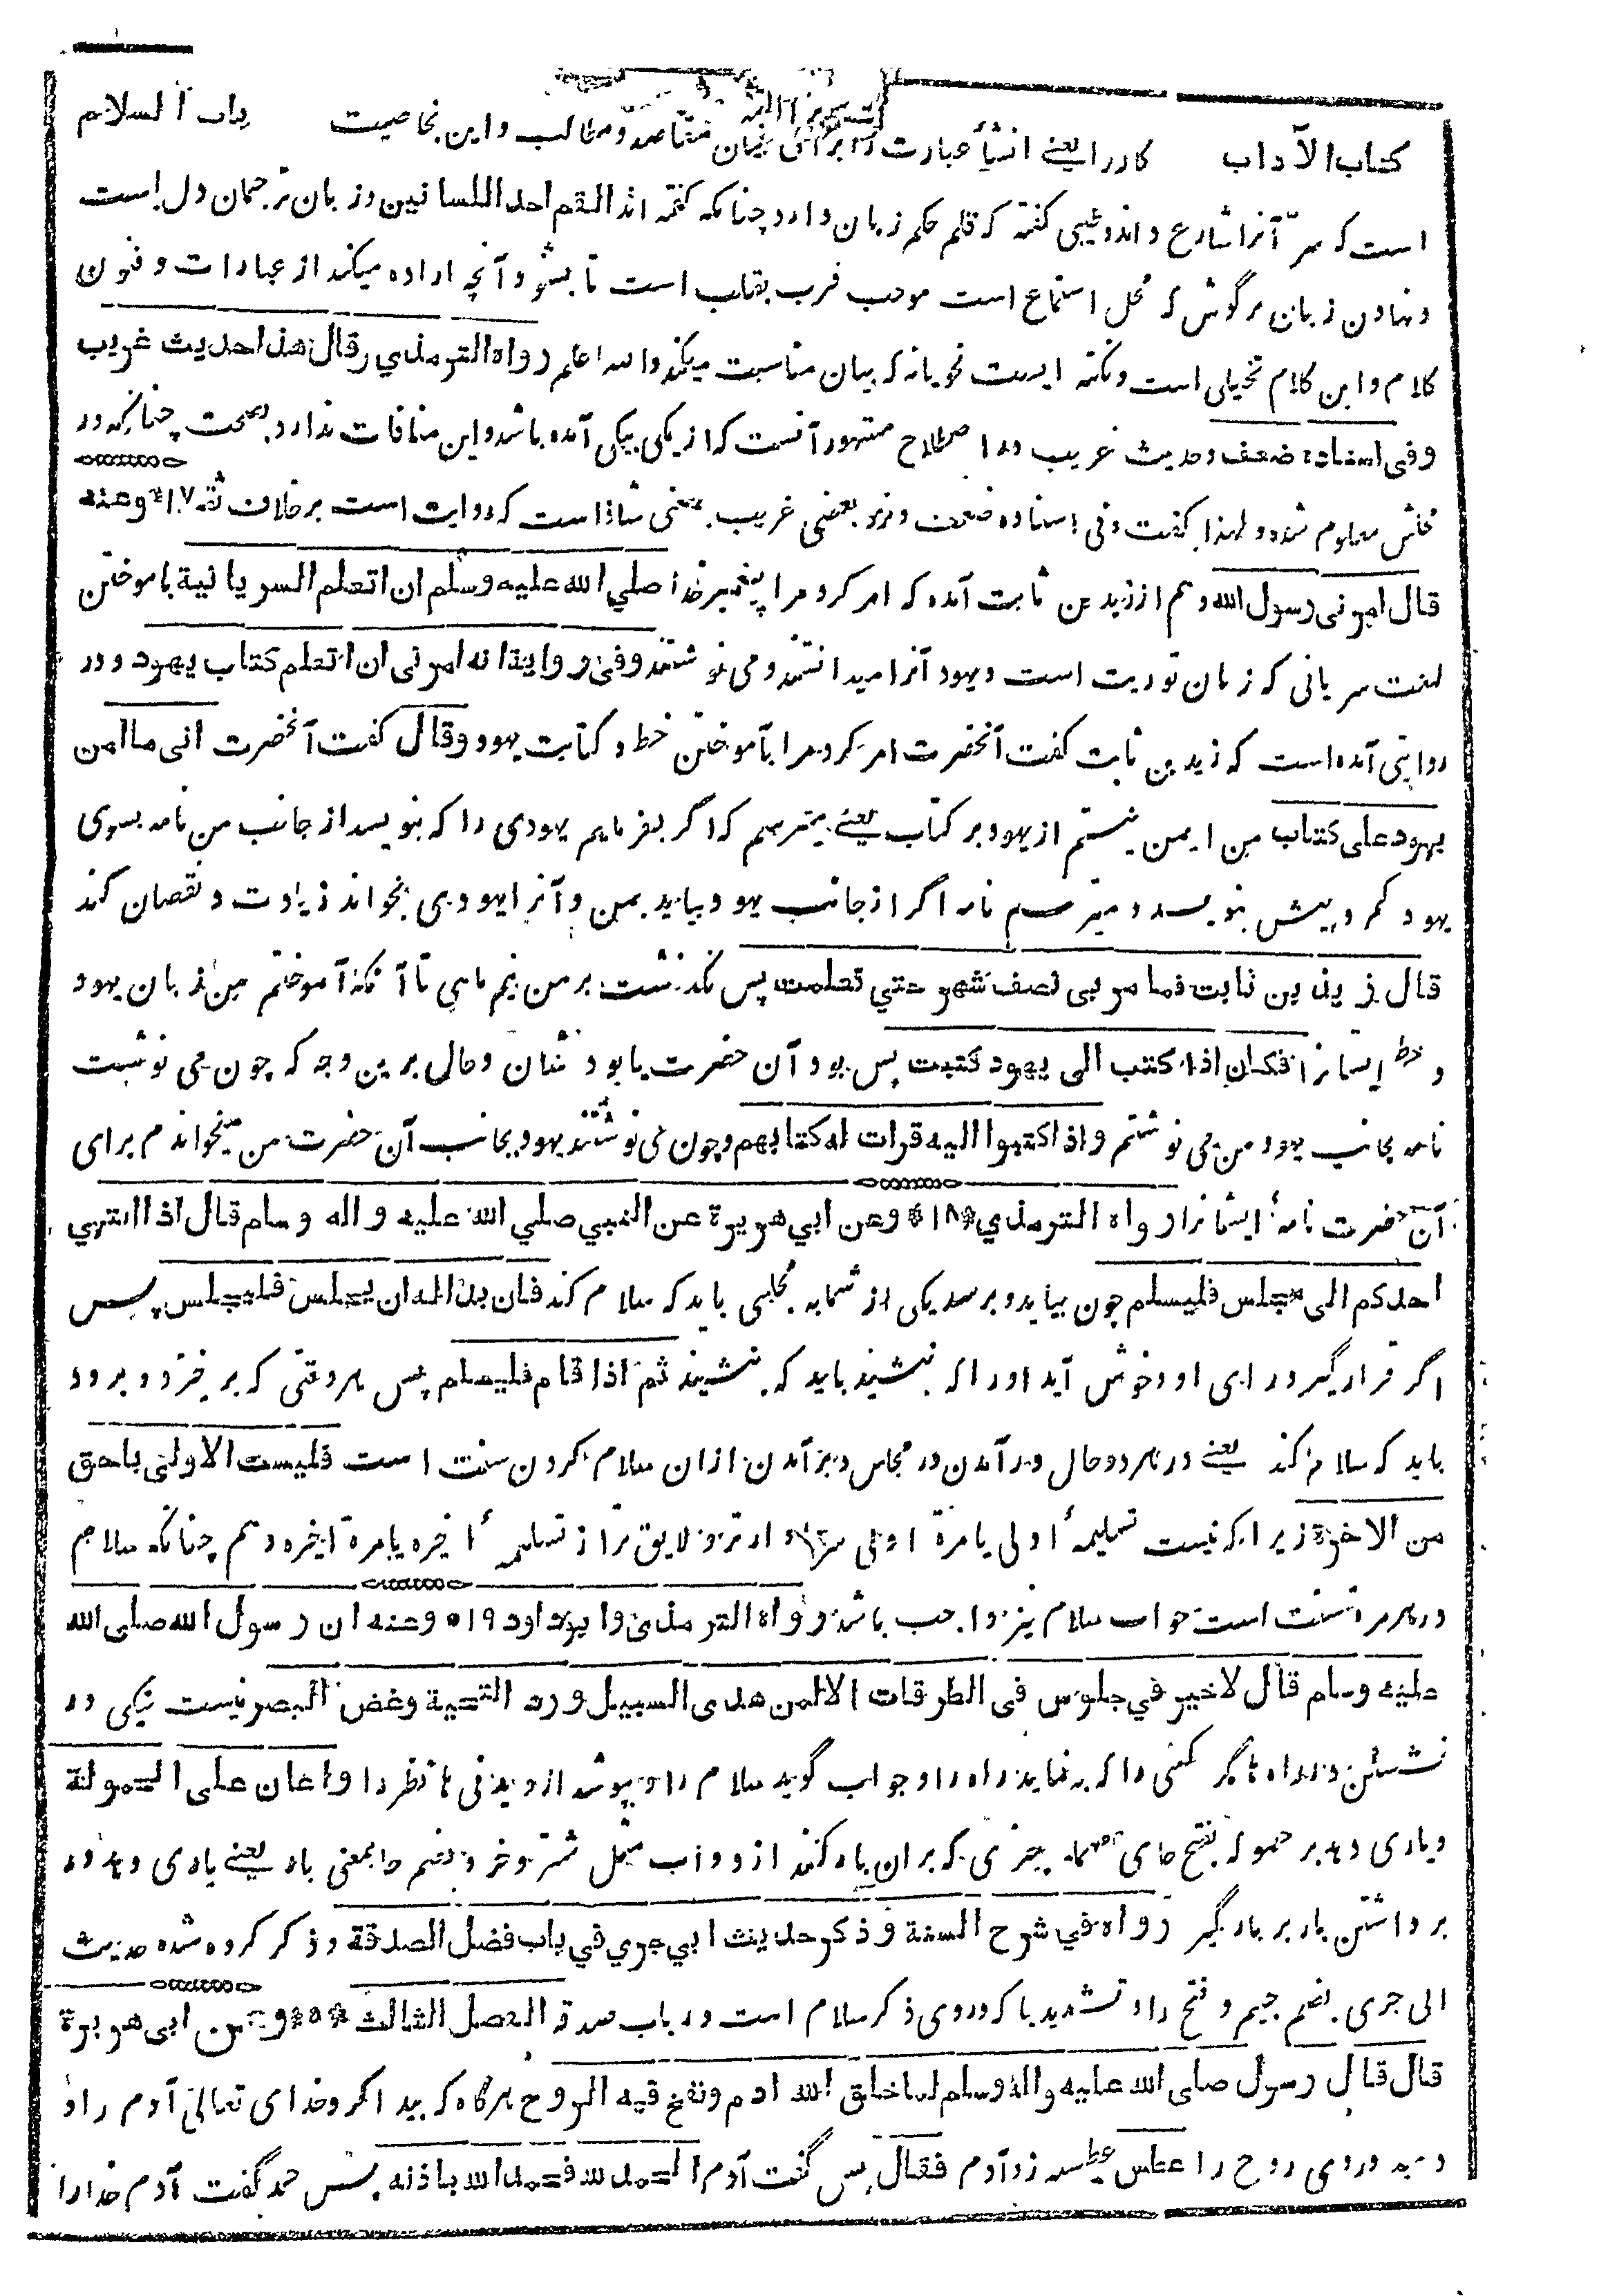 كتاب الآداب
باب السلام
كار را یعنے انشأ عبارت را برای بیان مقاصد و مطالب و این بخاصیت
است که سرّ آنرا شارع داند و طیبی گفته که قلم حکم زبان دارد چنانکه گفته اند القلم احد اللسانین و زبان ترجمان دل است
و نهادن زبان بر گوش که محل استماع است موجب قرب بقلب است تا بشنود آنچه اراده میکند از عبارات و فنون
کلام و این کلام تخیلی است و نکته ایست نحویانه که بیان مناسبت میکند و الله اعلم رواه الترمذي وقال هذا حديث غريب
وفي اسناده ضعف و حدیث غریب در اصطلاح مشهور آنست که از یکی بیکی آمده باشد و این منافات ندارد بصحت چنانکه در
محلش معلوم شد و لهذا گفت و فی اسناده ضعف و نزد بعضی غریب بمعنی شاذ است که روایت است بر خلاف ثقه ۱۷ وعنه
قال امرني رسول الله و هم از زید بن ثابت آمده که امر کرد مرا پیغمبر خدا صلي الله عليه وسلم ان اتعلم السريانية بآموختن
لغت سریانی که زبان توریت است و یهود آنرا میدانستند و می نوشتند وفي رواية انه امرني ان اتعلم كتاب يهود و در
روایتی آمده است که زید بن ثابت گفت آنحضرت امر کرد مرا بآموختن خط و کتابت یهود وقال گفت آنحضرت اني ما امن
يهود على كتاب من ایمن نیستم از یهود بر کتاب یعنے میترسم که اگر بفرمایم یهودی را که بنویسد از جانب من نامه بسوی
یهود کم و بیش بنویسد و میترسم نامه اگر از جانب یهود بیاید بمن و آنرا یهودی بخواند زیادت و نقصان کند
قال زيد بن ثابت فما مر بي نصف شهر حتي تعلمت پس نگذشت بر من نیم ماهی تا آنکه آموختم من زبان یهود
و خط ایشانرا فكان اذا كتب الى يهود كتبت پس بود آن حضرت یا بود شان و حال برین وجه که چون می نوشت
نامه بجانب یهود من می نوشتم واذا كتبوا اليه قرات له كتابهم و چون می نوشتند یهود بجانب آن حضرت من میخواندم برای
آن حضرت نامهٔ ایشانرا رواه الترمذي ۱۸ وعن ابي هريرة عن النبي صلي الله عليه واله وسلم قال اذا انتهي
احدكم الى مجلس فليسلم چون بیاید و برسد یکی از شما به مجلسی باید که سلام کند فان بدا له ان يجلس فليجلس پس
اگر قرار گیرد رای او و خوش آید او را که بنشیند باید که بنشیند ثم اذا قام فليسلم پس هر وقتی که برخیزد و برود
باید که سلام کند یعنے در هر دو حال در آمدن در مجلس و برآمدن ازان سلام کردن سنت است فليست الاولى باحق
من الاخرة زیرا که نیست تسلیمهٔ اولی یا مرة اولی سزاوارتر و لایق تر از تسلیمهٔ اخیره یا مرة اخیره و هم چنانکه سلام
در هر مرة سنت است جواب سلام نیز واجب باشد رواه الترمذي وابو داود ۱۹ وعنه ان رسول الله صلى الله
عليه وسلم قال لا خير في جلوس في الطرقات الا لمن هدى السبيل ورد التحية وغض البصر نیست نیکی در
نشستن در راه ها مگر کسی را که بنماید راه را و جواب گوید سلام را و بپوشد از دیدنی ها نظر را واعان على الحمولة
و یاری دهد بر حموله بفتح حای مهمله چیزی که بران بار کنند از دواب مثل شتر و خر و بضم حا بمعنی بار یعنے یاری دهد در
برداشتن بار بر بارگیر رواه في شرح السنة وذكر حديث ابي جري في باب فضل الصدقة و ذکر کرده شده حدیث
ابی جری بضم جیم و فتح را و تشدید یا که دروی ذکر سلام است در باب صدقه الفصل الثالث وعن ابي هريرة
قال قال رسول صلى الله عليه واله وسلم لما خلق الله ادم ونفخ فيه الروح هرگاه که پیدا کرد خدای تعالی آدم را و
دمید دروی روح را عطس عطسه زد آدم فقال پس گفت آدم الحمد لله فحمد الله باذنه پس حمد گفت آدم خدا را